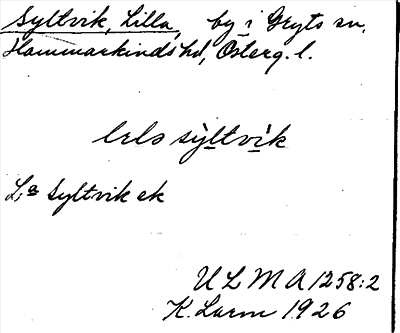 Syltvik, Lilla, by i Gryts sn,
Hammarkinds hd, Österg. l.
lɩlə sỳltvìk
L:a Syltvik ek
ULMA 1258:2
K. Larm 1926